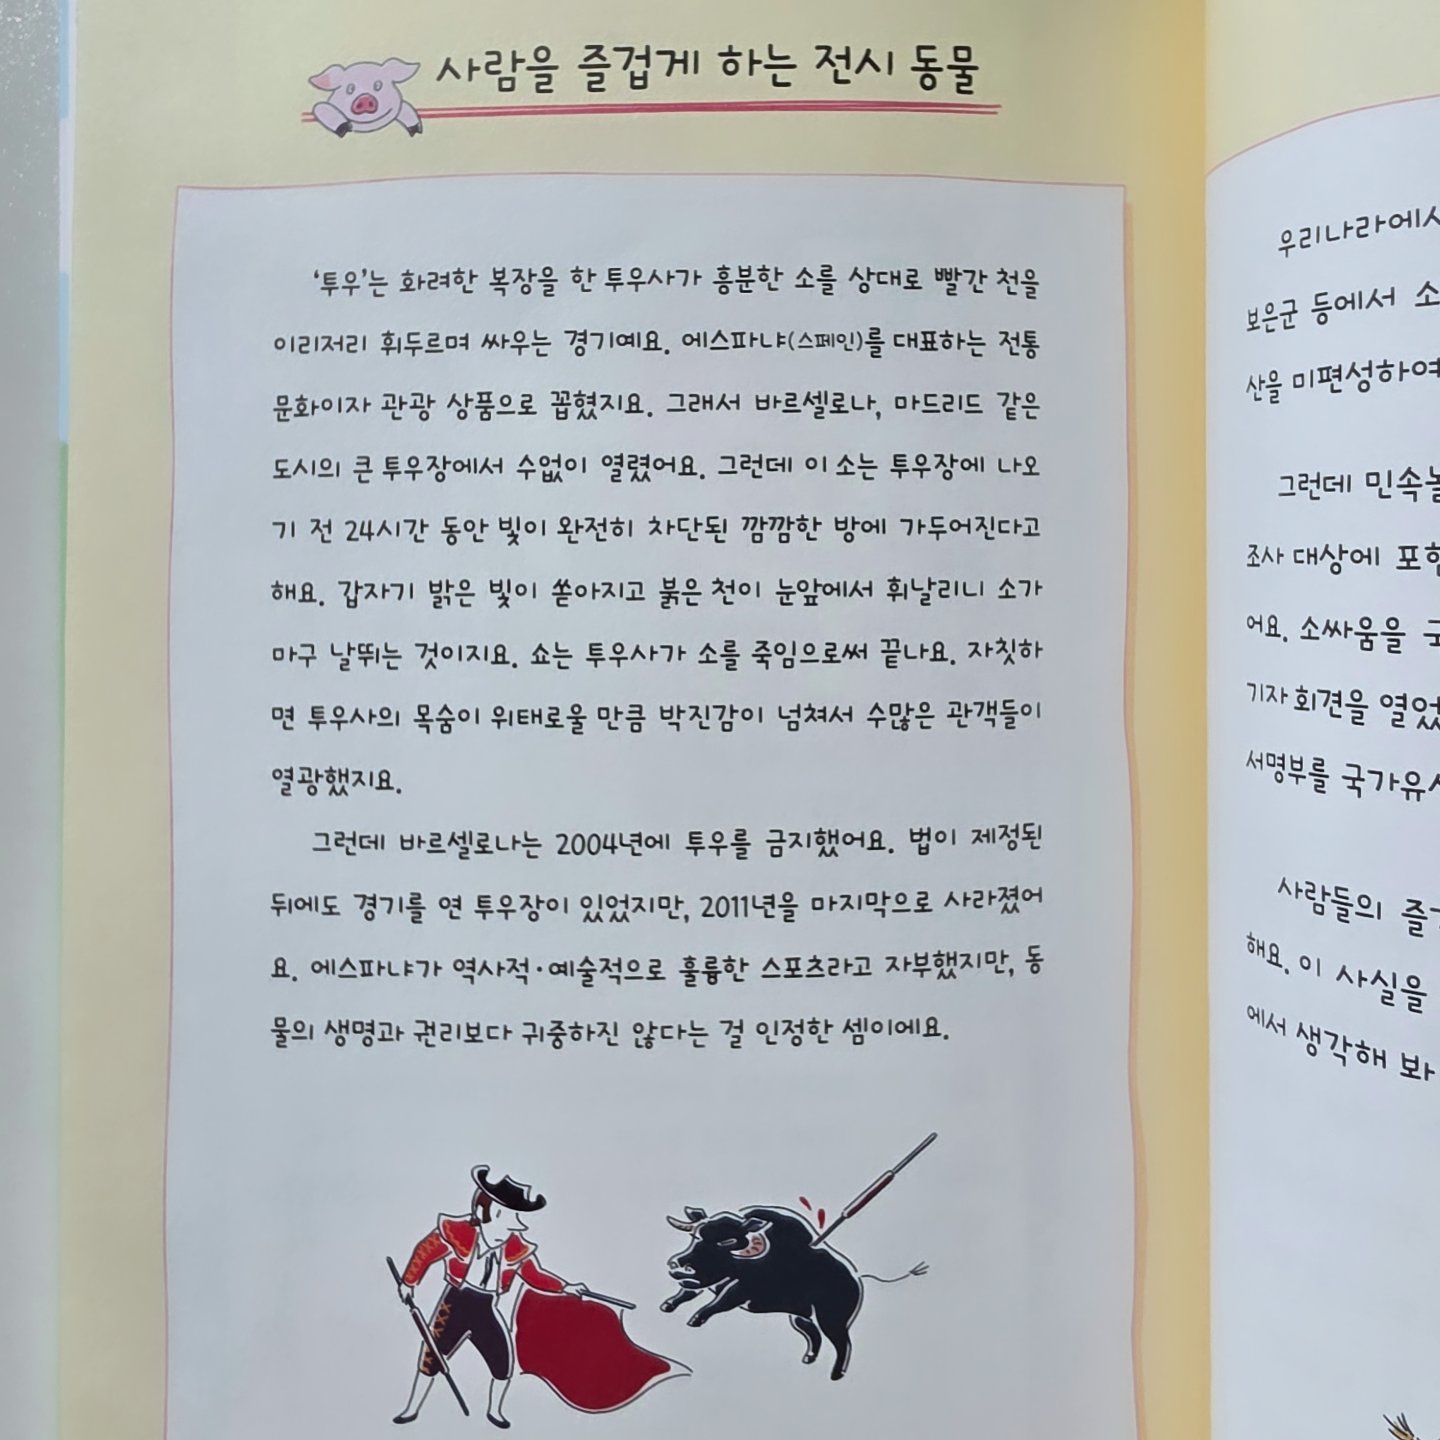 사람을 즐겁게 하는 전시 동물
‘투우’는 화려한 복장을 한 투우사가 흥분한 소를 상대로 빨간 천을
이리저리 휘두르며 싸우는 경기예요. 에스파냐(스페인)를 대표하는 전통
문화이자 관광 상품으로 꼽혔지요. 그래서 바르셀로나, 마드리드 같은
도시의 큰 투우장에서 수없이 열렸어요. 그런데 이 소는 투우장에 나오
기 전 24시간 동안 빛이 완전히 차단된 깜깜한 방에 가두어진다고
해요. 갑자기 밝은 빛이 쏟아지고 붉은 천이 눈앞에서 휘날리니 소가
마구 날뛰는 것이지요. 쇼는 투우사가 소를 죽임으로써 끝나요. 자칫하
면 투우사의 목숨이 위태로울 만큼 박진감이 넘쳐서 수많은 관객들이
열광했지요.
그런데 바르셀로나는 2004년에 투우를 금지했어요. 법이 제정된
뒤에도 경기를 연 투우장이 있었지만, 2011년을 마지막으로 사라졌어
요. 에스파냐가 역사적·예술적으로 훌륭한 스포츠라고 자부했지만, 동
물의 생명과 권리보다 귀중하진 않다는 걸 인정한 셈이에요.
우리나라에서
보은군 등에서 소
산을 미편성하여
그런데
조사 대상에
어요. 소싸움을
기자 회견을
서명부를
사람들의
해요. 이 사실을
에서 생각해 봐